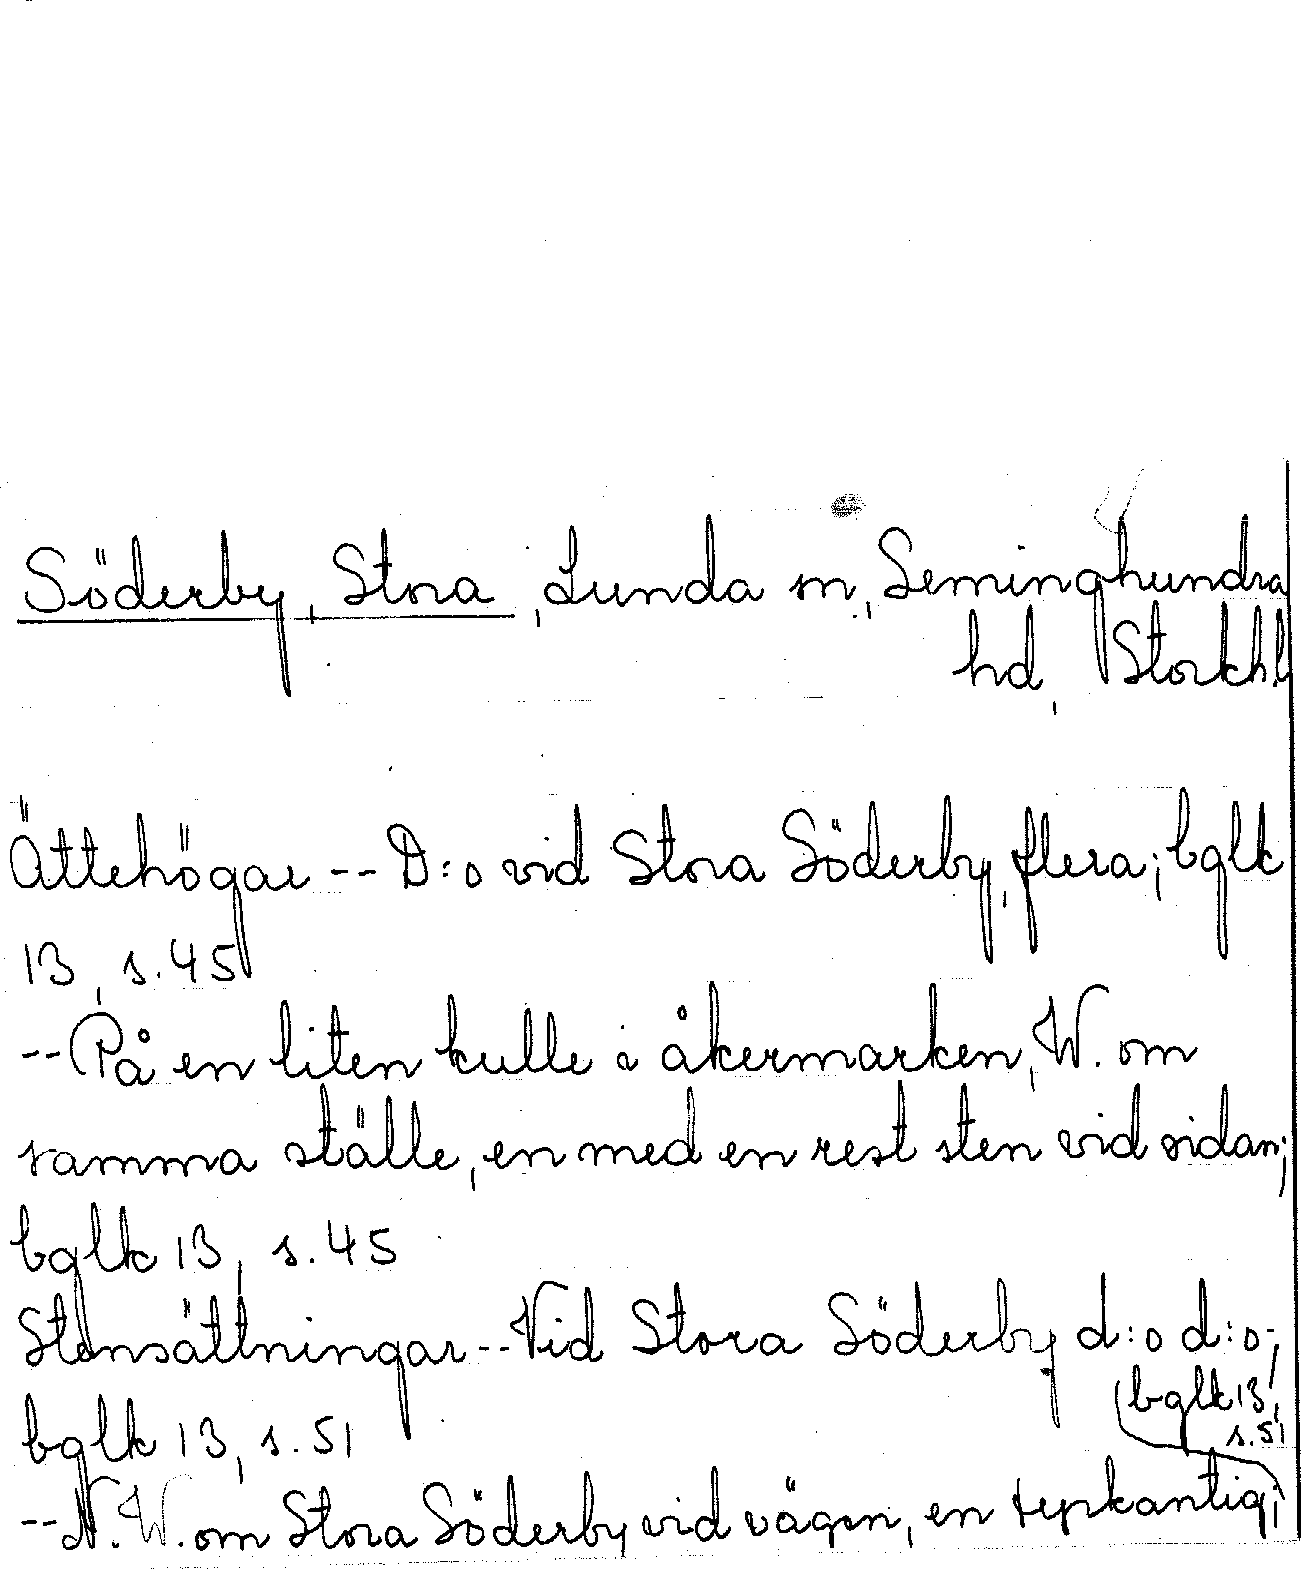 Söderby, Stora, Lunda sn, Seminghundra
hd, Stockhl
Ättehögar -- D:o vid Stora Söderby, flera; bglk
13, s. 45
-- På en liten kulle i åkermarken, W. om
samma ställe, en med en rest sten vid sidan;
bglk 13, s. 45
Stensättningar -- Vid Stora Söderby d:o d:o;
bglk 13, s. 51
bglk 13, s. 51
-- N.W. om Stora Söderby vid vägen, en trekantig;